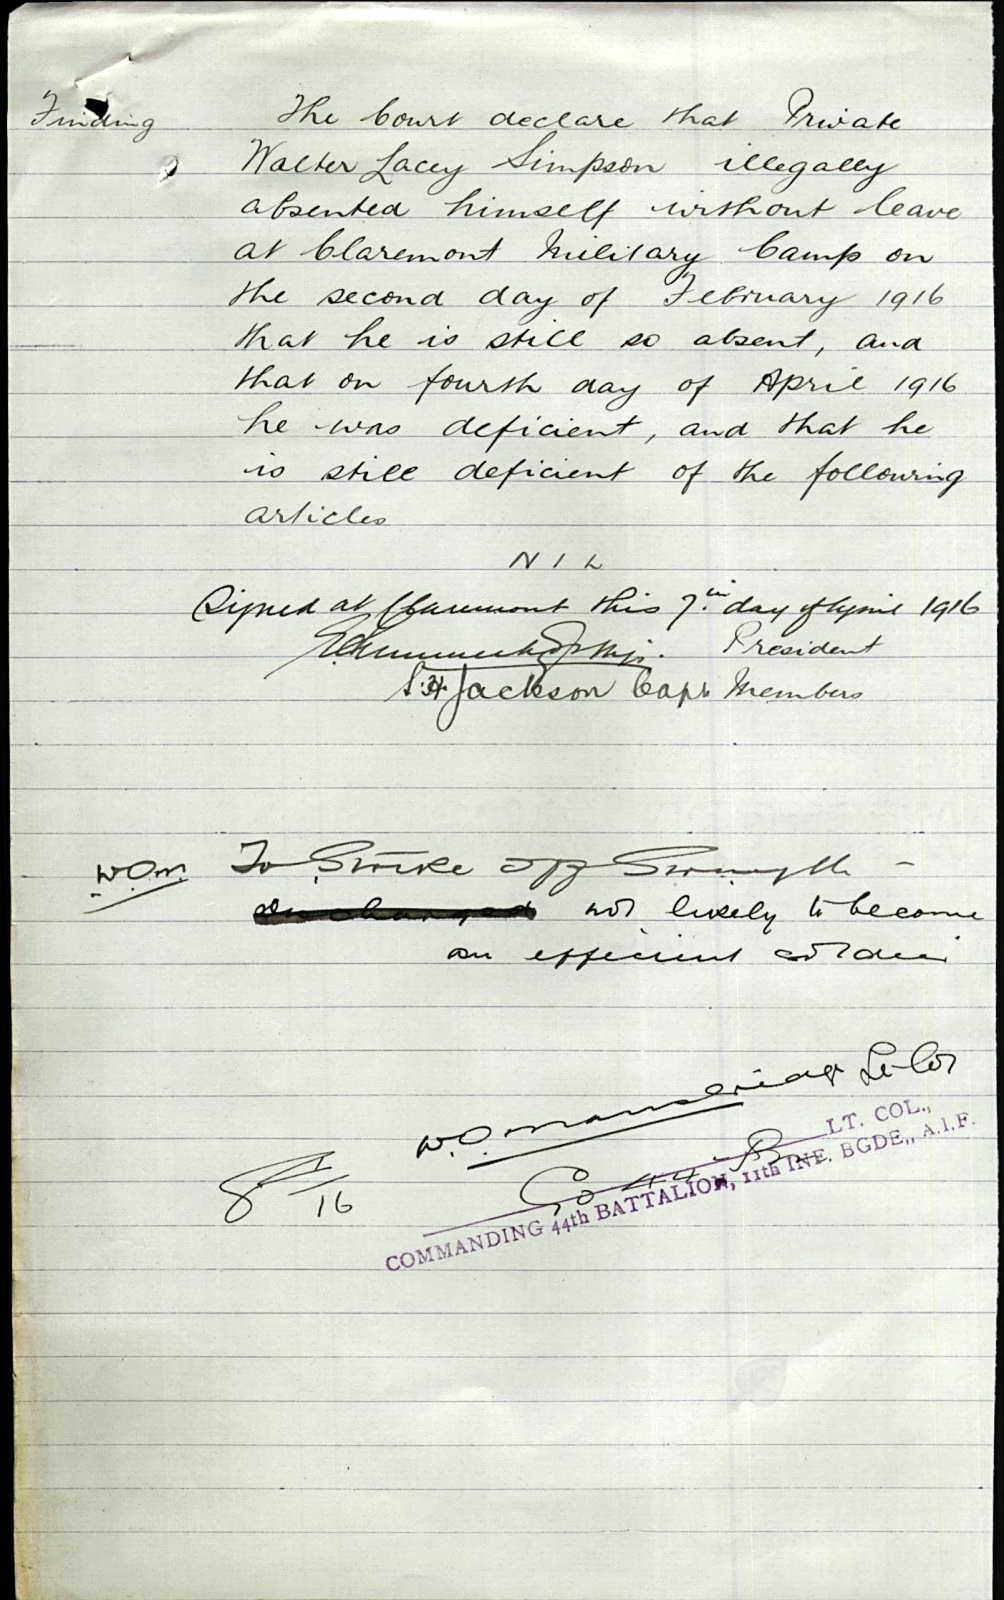 Finding The Court declare that Private
Walter Lacey Simpson illegally
absented himself without leave
at Claremont Military Camp on
the second day of February 1916
that he is still so absent, and
that on fourth day of April 1916
he was deficient, and that he
is still deficient of the following
articles
NIL
Signed at Claremont this 7th day of April 1916
Maj. President
S.H. Jackson Capt Members
W.O.M. To Strike off Strength -
not likely to become
an efficient soldier
W.O. Mansbridge Lt Col
LT. COL.,
Co 44 Bn
COMMANDING 44th BATTALION, 11th INF. BGDE., A.I.F.
8/16